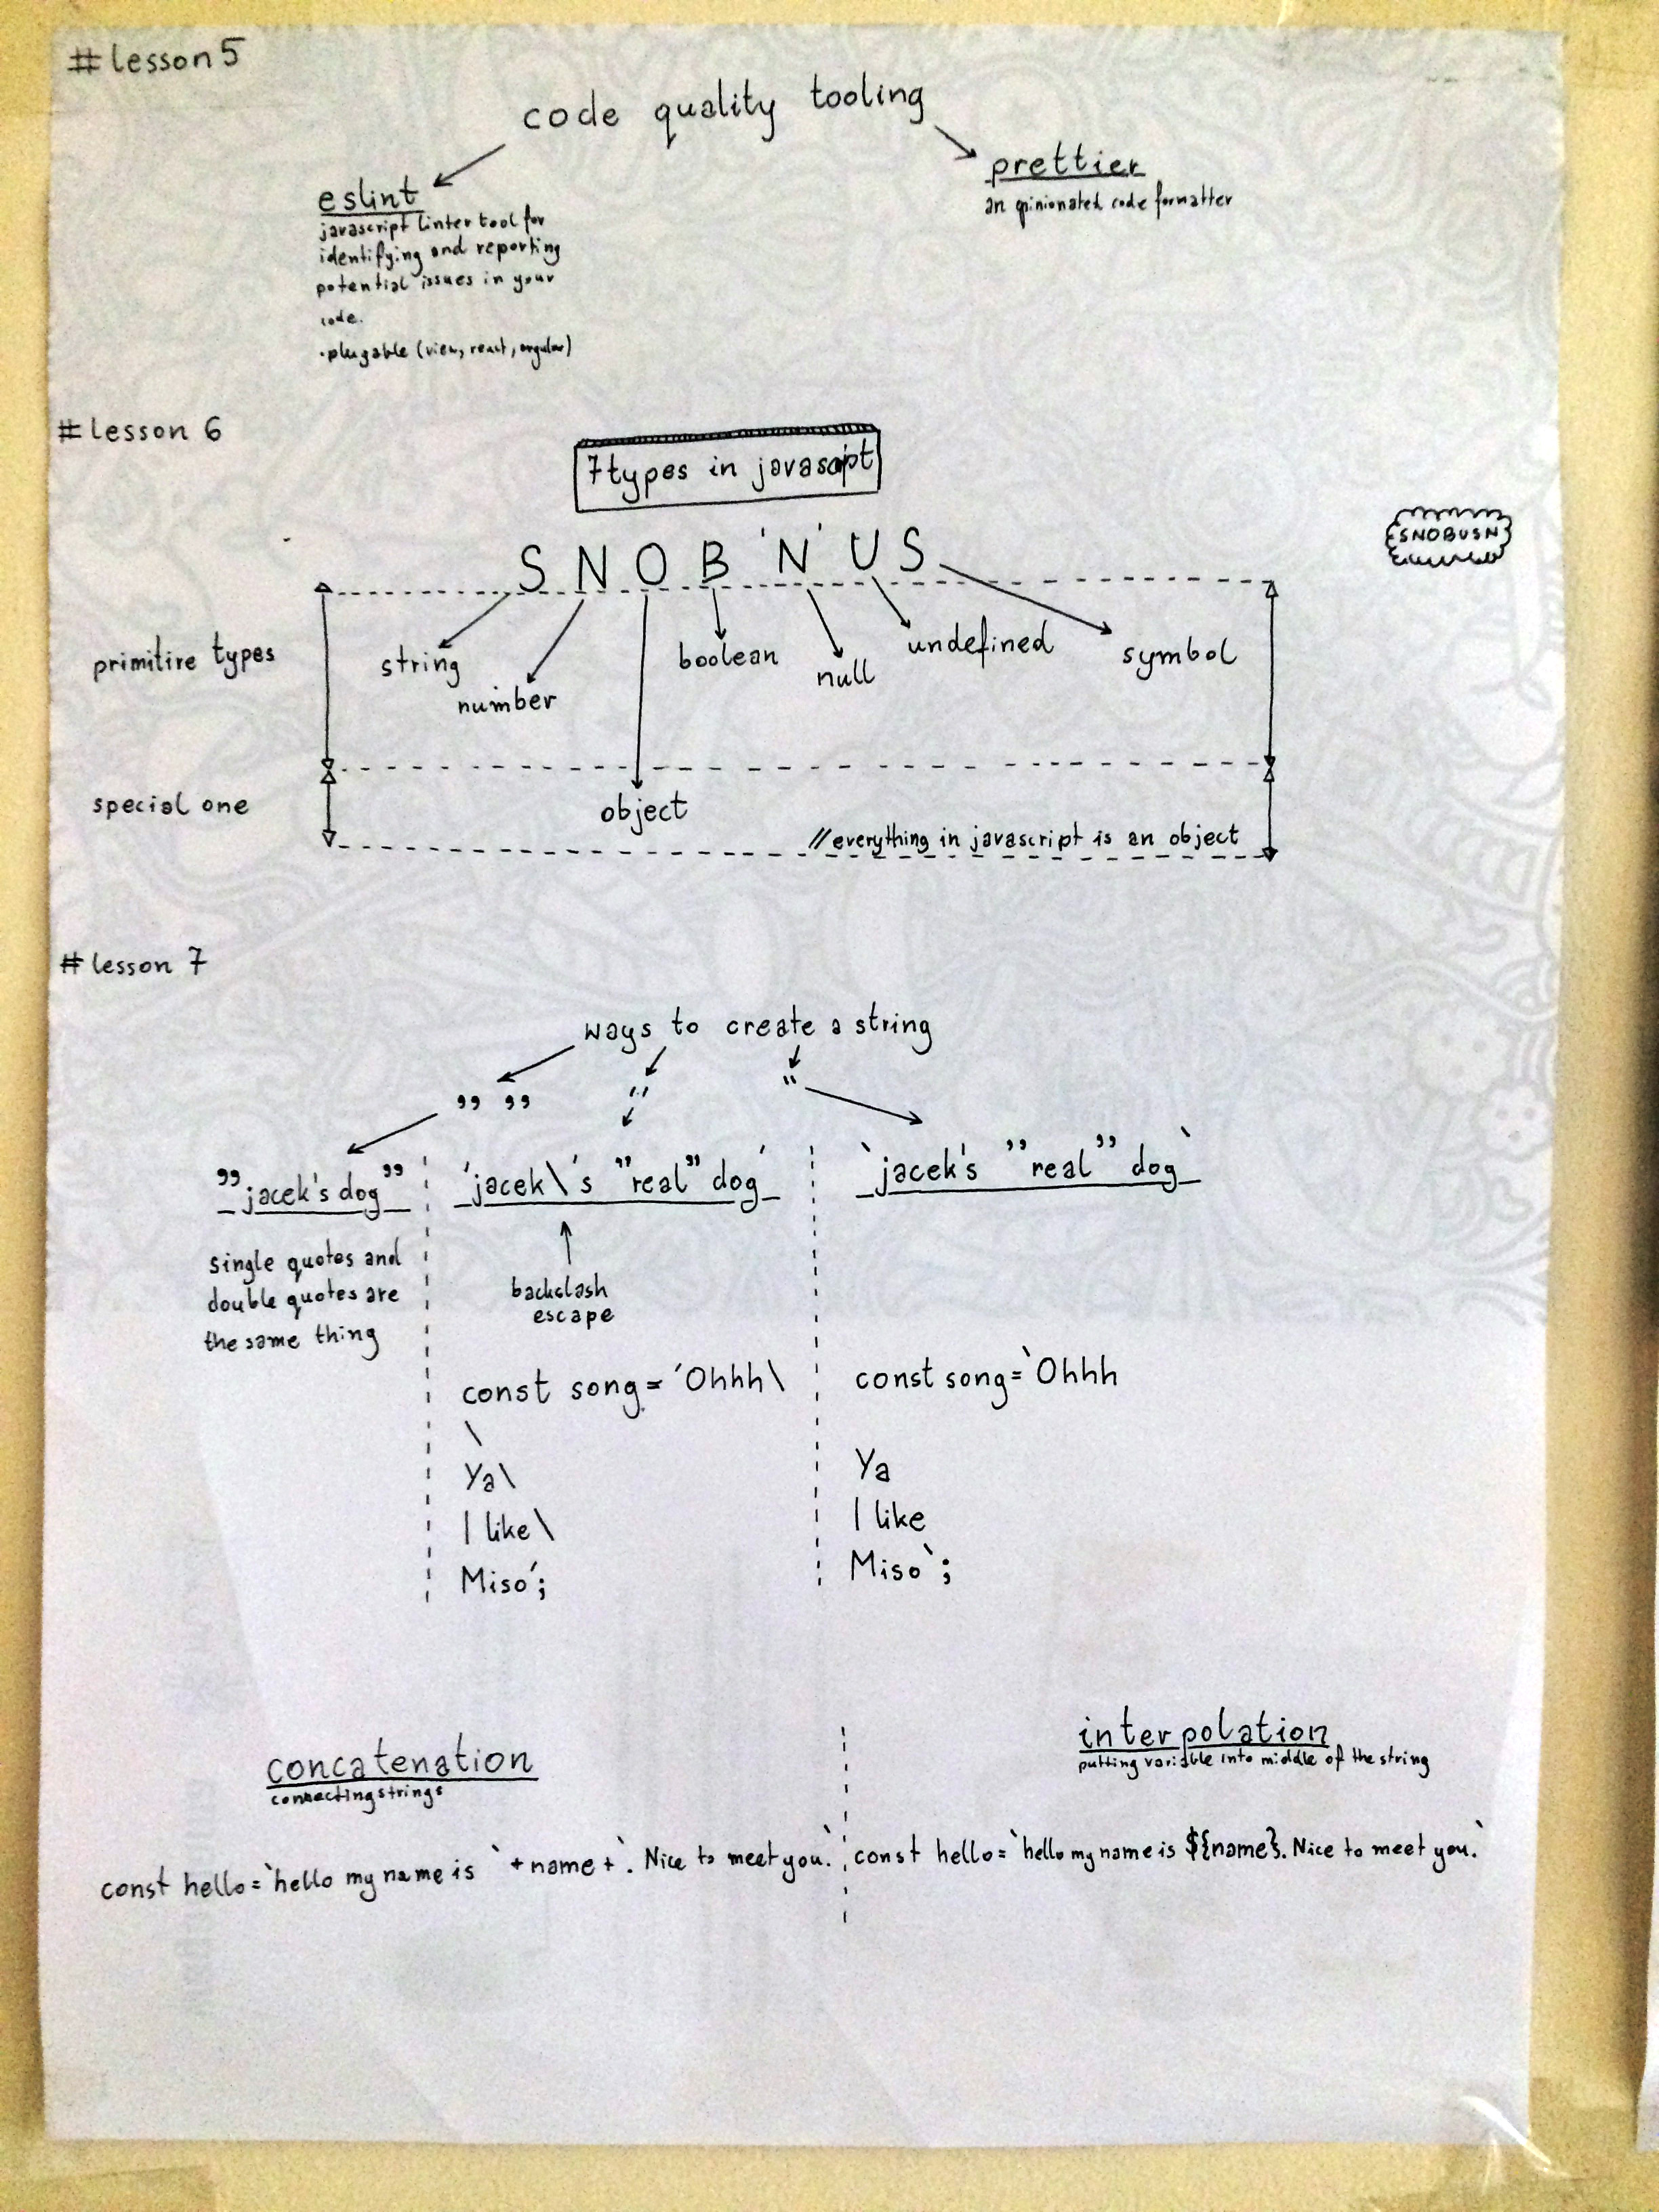 # lesson 5
code quality tooling
eslint
javascript linter tool for
identifying and reporting
potential issues in your
code.
·plugable (view, react, angular)
prettier
an opinionated code formatter
# lesson 6
7 types in javascript
SNOB'N'US
SNOBUSN
primitire types
string
number
boolean
null
undefined
symbol
special one
object
//everything in javascript is an object
# lesson 7
ways to create a string
" "
''
``
"jacek's dog"
'jacek\'s "real" dog'
`jacek's "real" dog`
single quotes and
double quotes are
the same thing
backslash
escape
const song = 'Ohhh\
\
Ya\
I like\
Miso';
const song = `Ohhh
Ya
I like
Miso`;
concatenation
connecting strings
const hello = `hello my name is ` + name + `. Nice to meet you.`
interpolation
putting variable into middle of the string
const hello = `hello my name is ${name}. Nice to meet you.`